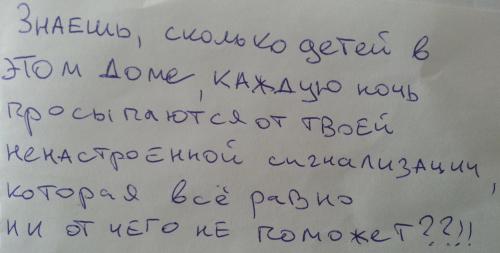 Знаешь, сколько детей в
этом доме, каждую ночь
просыпаются от твоей
ненастроенной сигнализации,
которая всё равно
ни от чего не поможет??!!